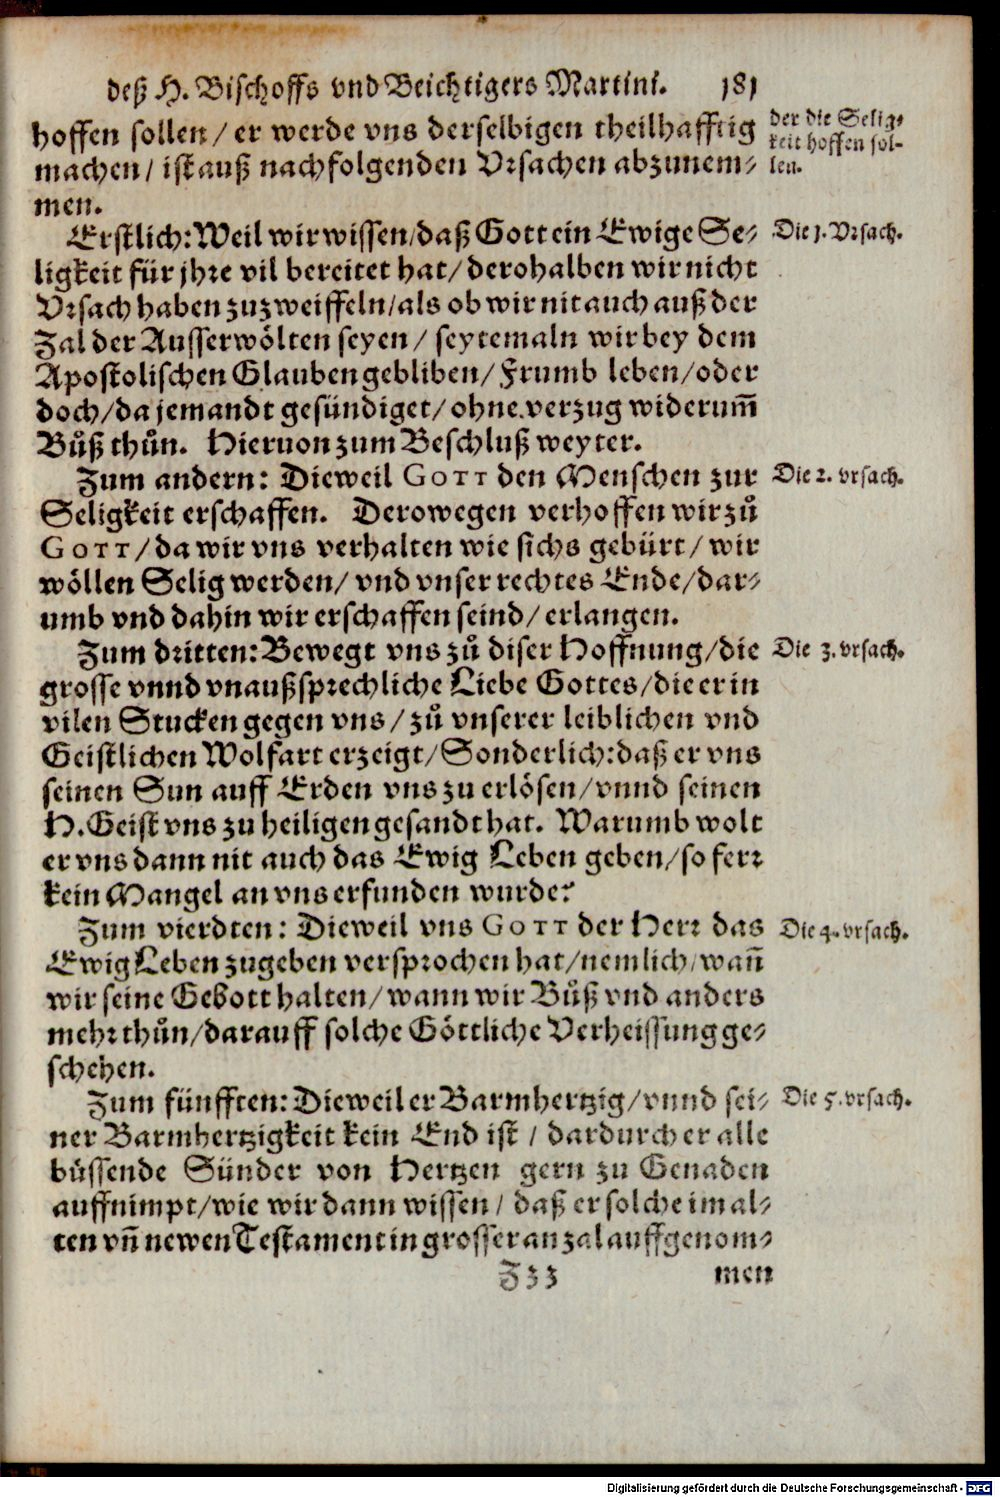 deß H. Bischoffs vnd Beichtigers Martini. 181
hoffen sollen/ er werde vns derselbigen theilhafftig
machen/ ist auß nachfolgenden Vrsachen abzunem-
men.
der die Selig-
keit hoffen sol-
len.
Erstlich: Weil wir wissen/ daß Gott ein Ewige Se-
ligkeit für jhre vil bereitet hat/ derohalben wir nicht
Vrsach haben zu zweiffeln/ als ob wir nit auch auß der
Zal der Ausserwölten seyen/ seytemaln wir bey dem
Apostolischen Glauben gebliben/ Frumb leben/ oder
doch/ da jemandt gesündiget/ ohne verzug widerum̃
Bůß thůn. Hieruon zum Beschluß weyter.
Die 1. Vrsach.
Zum andern: Dieweil GOTT den Menschen zur
Seligkeit erschaffen. Derowegen verhoffen wir zů
GOTT/ da wir vns verhalten wie sichs gebürt/ wir
wöllen Selig werden/ vnd vnser rechtes Ende/ dar-
umb vnd dahin wir erschaffen seind/ erlangen.
Die 2. vrsach.
Zum dritten: Bewegt vns zů diser Hoffnung/ die
grosse vnnd vnaußsprechliche Liebe Gottes/ die er in
vilen Stucken gegen vns/ zů vnserer leiblichen vnd
Geistlichen Wolfart erzeigt/ Sonderlich: daß er vns
seinen Sun auff Erden vns zu erlösen/ vnnd seinen
H. Geist vns zu heiligen gesandt hat. Warumb wolt
er vns dann nit auch das Ewig Leben geben/ so ferr
kein Mangel an vns erfunden wurde?
Die 3. vrsach.
Zum vierdten: Dieweil vns GOTT der Herr das
Ewig Leben zugeben versprochen hat/ nemlich/ wañ
wir seine Gebott halten/ wann wir Bůß vnd anders
mehr thůn/ darauff solche Göttliche Verheissung ge-
schehen.
Die 4. vrsach.
Zum fünfften: Dieweil er Barmhertzig/ vnnd sei-
ner Barmhertzigkeit kein End ist/ dardurch er alle
büssende Sünder von Hertzen gern zu Genaden
auffnimpt/ wie wir dann wissen/ daß er solche im al-
ten vñ newen Testament in grosser anzal auffgenom-
Die 5. vrsach.
Zzz men
Digitalisierung gefördert durch die Deutsche Forschungsgemeinschaft - DFG